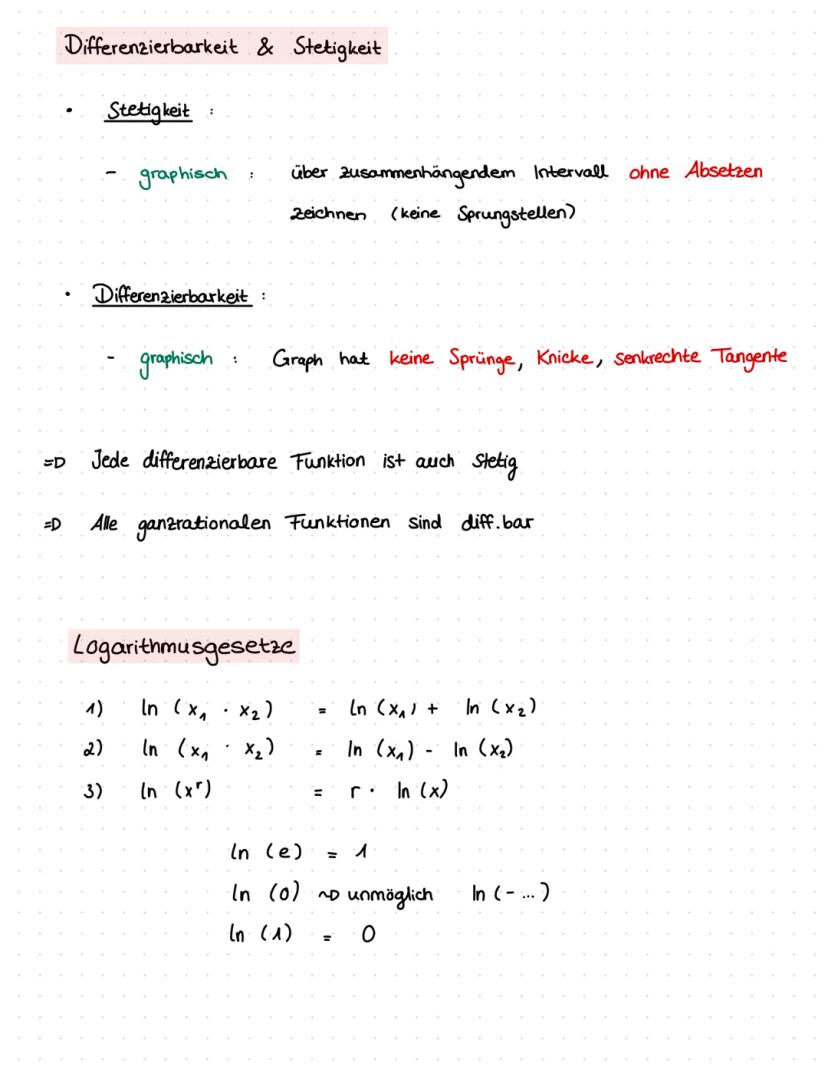 Differenzierbarkeit & Stetigkeit
• Stetigkeit :
- graphisch : über zusammenhängendem Intervall ohne Absetzen
zeichnen (keine Sprungstellen)
• Differenzierbarkeit :
- graphisch : Graph hat keine Sprünge, Knicke, senkrechte Tangente
=D Jede differenzierbare Funktion ist auch stetig
=D Alle ganzrationalen Funktionen sind diff.bar
Logarithmusgesetze
1) ln (x₁ · x₂) = ln (x₁) + ln (x₂)
2) ln (x₁ · x₂) = ln (x₁) - ln (x₂)
3) ln (xʳ) = r · ln (x)
ln (e) = 1
ln (0) ~D unmöglich ln (- ...)
ln (1) = 0